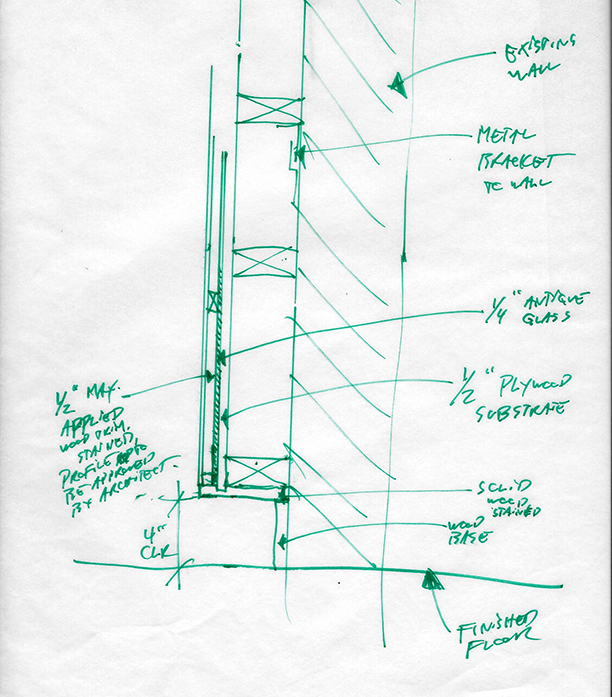 EXISTING
WALL
METAL
BRACKET
TO WALL
1/4" ANTIQUE
GLASS
1/2" MAX.
APPLIED
WOOD TRIM.
STAINED,
PROFILE TO
BE APPROVED
BY ARCHITECT.
1/2" PLYWOOD
SUBSTRATE
SOLID
WOOD
STAINED
WOOD
BASE
4"
CLR
FINISHED
FLOOR